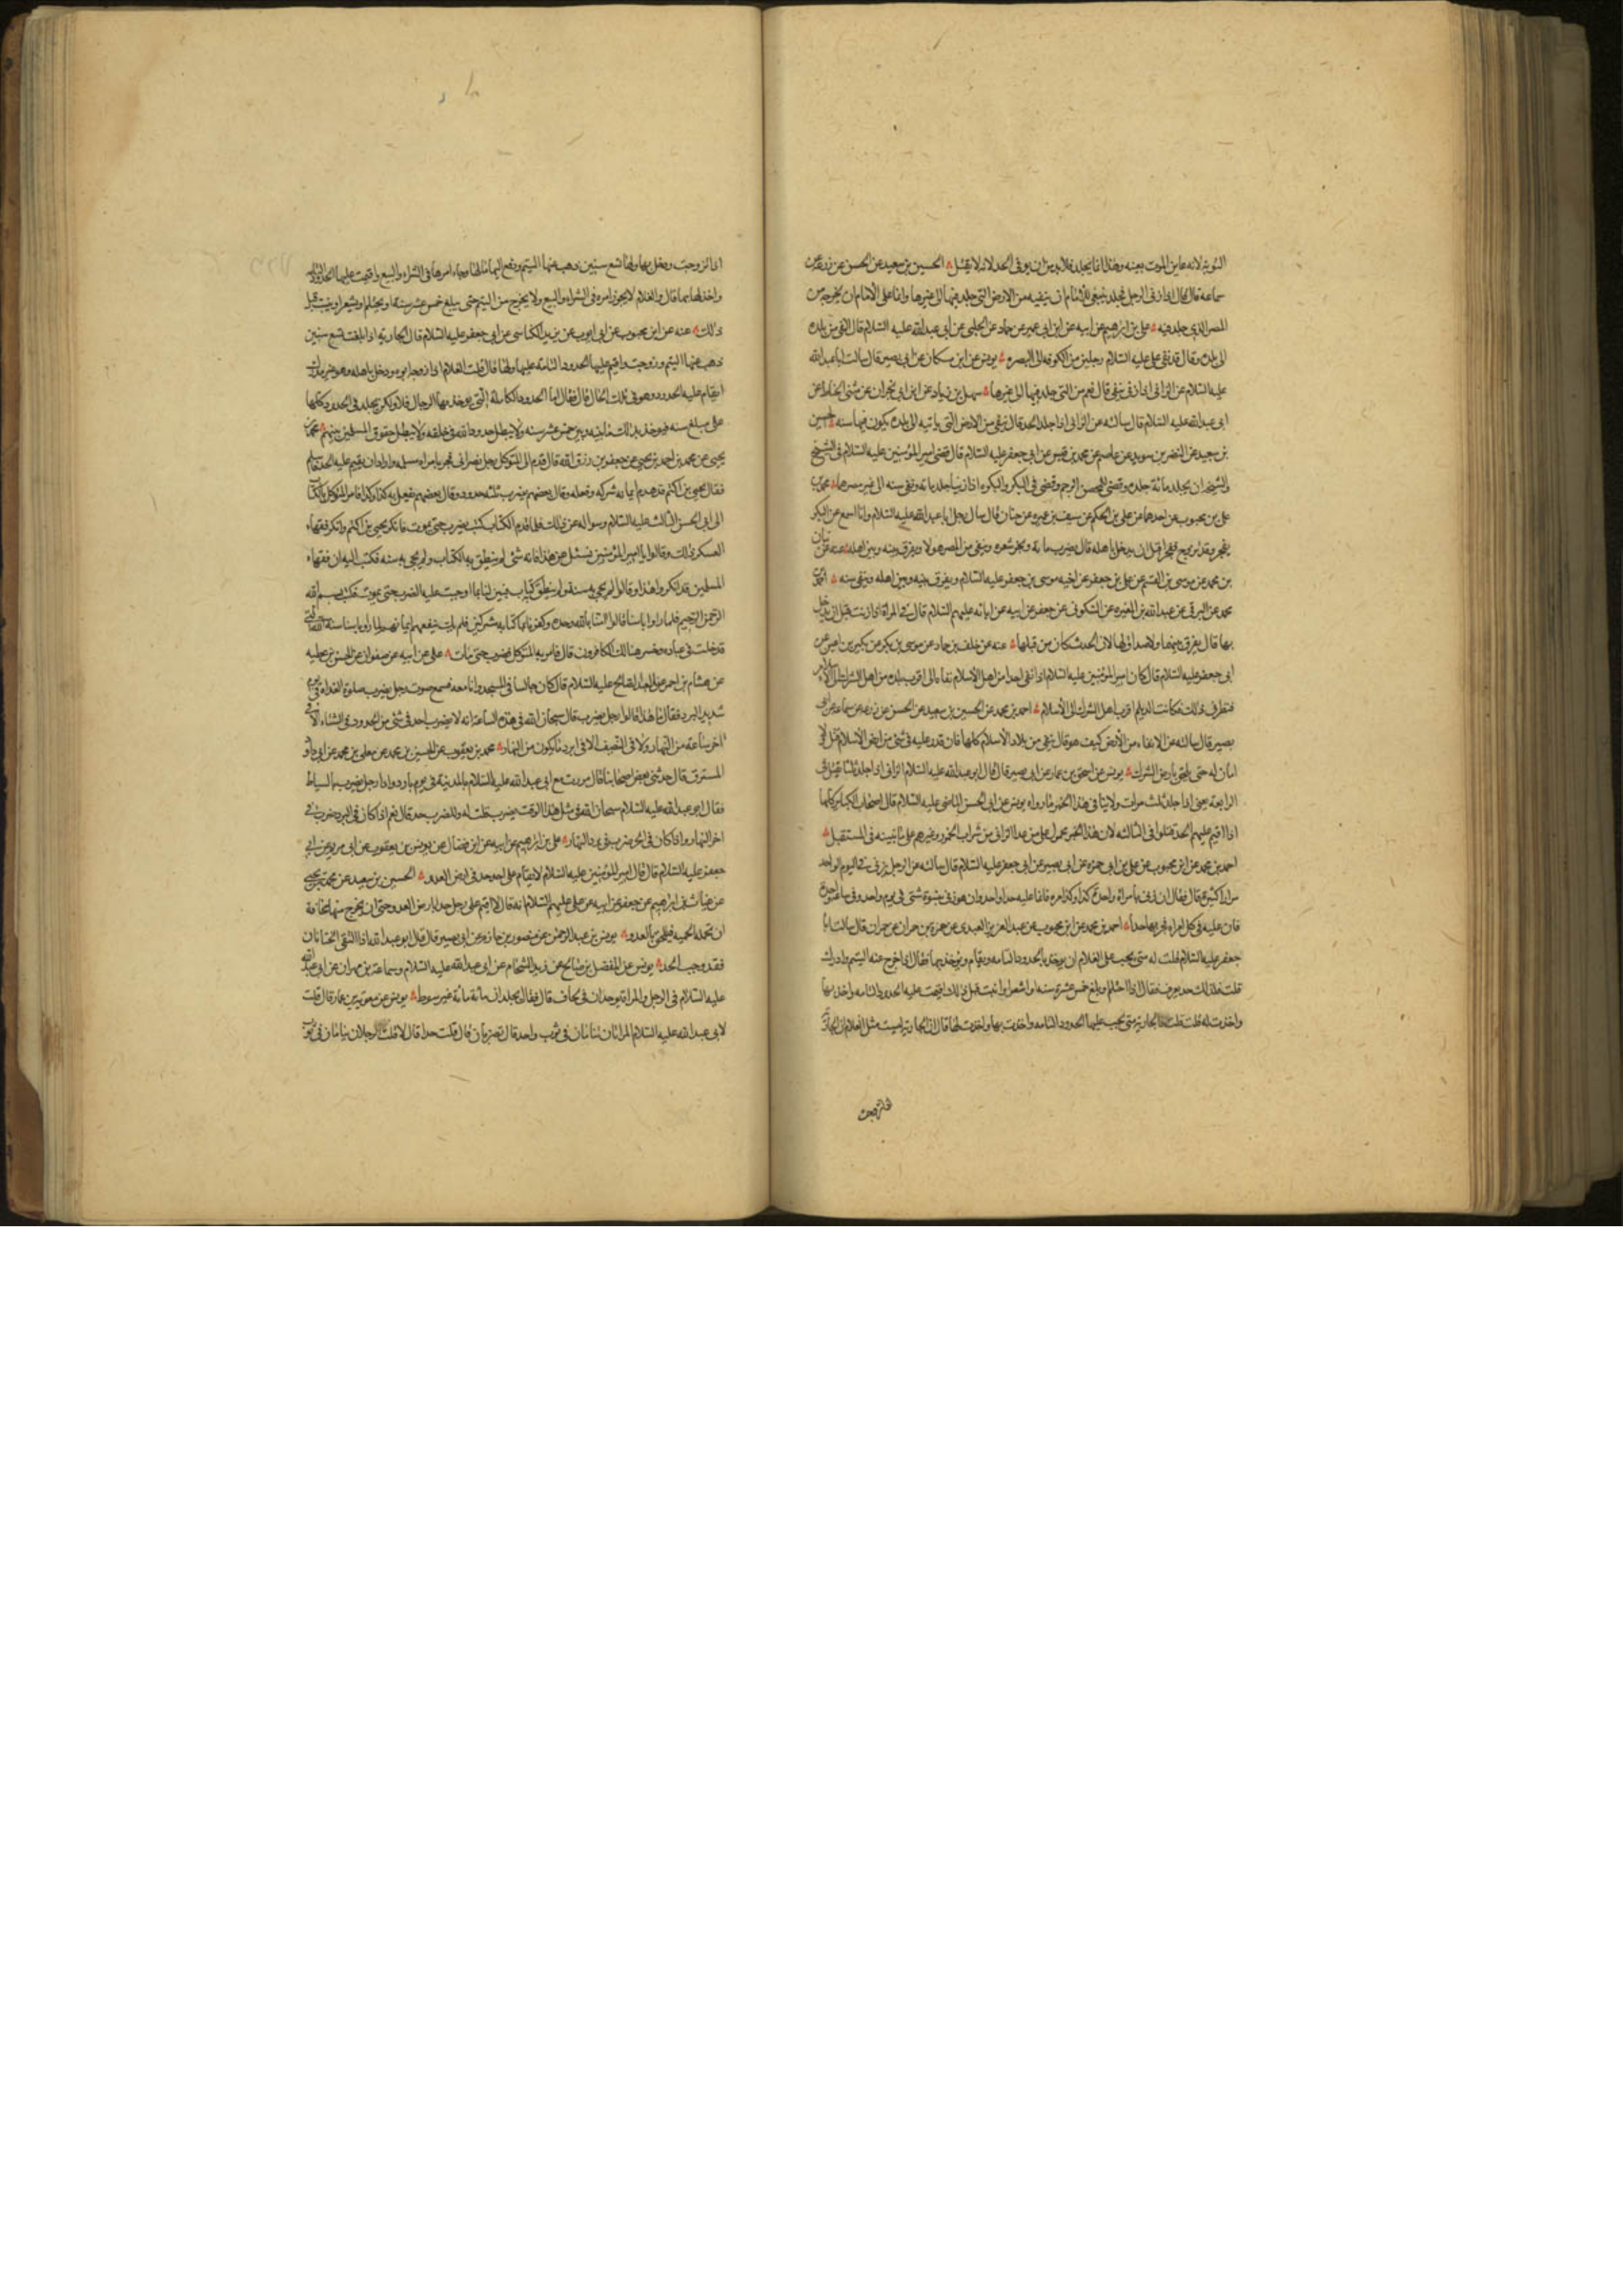 التوبة لانه عاين الموت بعينه وهذا انما يجلد فلا بد من ان يوفى الحد لانه لا يقتل الحسين بن سعيد عن الحسن عن زرعه عن
سماعة قال قال اذا زنى الرجل فجلد ينبغي للامام ان ينفيه من الارض التي جلد فيها الى غيرها وانما على الامام ان يخرجه من
المصر الذي جلد فيه على بن ابرهيم عن ابيه عن ابن ابى عمير عن حماد عن الحلبى عن ابى عبد الله عليه السلام قال النفي من بلده
الى بلده وقال قد نفى على عليه السلام رجلين من الكوفه الى البصره يونس عن ابن مسكان عن ابى بصير قال سالت ابا عبد الله
عليه السلام عن الزانى اذا زنى ينفى قال نعم من التى جلد فيها الى غيرها سهل بن زياد عن ابن ابى نجران عن مثنى الحناط عن
ابى عبد الله عليه السلام قال سالته عن الزانى اذا جلد الحد قال ينفى من الارض التى ياتيه الى بلده يكون فيها سنه الحسين
بن سعيد عن النضر بن سويد عن عاصم عن محمد بن قيس عن ابى جعفر عليه السلام قال قضى امير المؤمنين عليه السلام فى الشيخ
والشيخه ان يجلد مائة جلده وقضى للمحصن الرجم وقضى فى البكر والبكره اذا زنيا جلد مائه ونفى سنه الى غير مصرهما محمد بن
على بن محبوب عن احدهما عن على بن الحكم عن سيف بن عميره عن حنان قال سال رجل ابا عبد الله عليه السلام وانا اسمع عن البكر
يفجر وقد تزوج ففجر قبل ان يدخل باهله قال يضرب مائة ويجز شعره وينفى من المصر حولا ويفرق بينه وبين اهله عنه عن بنان
بن محمد عن موسى بن القسم عن على بن جعفر عن اخيه موسى بن جعفر عليه السلام ويفرق بينه وبين اهله وينفى سنه احمد بن
محمد عن البرقى عن عبد الله بن المغيره عن السكونى عن جعفر عن ابيه عن ابائه عليهم السلام قال فى المراة اذا زنت قبل ان يدخل
بها قال يفرق بينهما ولا صداق لها لان الحدث كان من قبلها عنه عن خلف بن حماد عن موسى بن بكر عن بكير بن اعين عن
ابى جعفر عليه السلام قال كان امير المؤمنين عليه السلام اذا نفى احدا من اهل الاسلام نفاه الى اقرب بلده من اهل الشرك الى الاسلام
فنظر فى ذلك فكانت الديلم اقرب اهل الشرك الى الاسلام احمد بن محمد عن الحسين بن سعيد عن الحسن عن زرعه عن سماعه عن ابى
بصير قال سالته عن الانفاء من الارض كيف هو قال ينفى من بلاد الاسلام كلها فان قدر عليه فى شئ من ارض الاسلام قتل ولا
امان له حتى يلحق بارض الشرك يونس عن اسحق بن عمار عن ابى بصير قال قال ابو عبد الله عليه السلام الزانى اذا جلد ثلثا يقتل فى
الرابعه يعنى اذا جلد ثلث مرات ولا ينافى هذا الخبر ما رواه يونس عن ابى الحسن الماضى عليه السلام قال اصحاب الكباير كلها
اذا اقيم عليهم الحد قتلوا فى الثالثه لان هذا الخبر محمول على من عدا الزانى من شراب الخمر وغيرهم على ما نبينه فى المستقبل
احمد بن محمد عن ابن محبوب عن على بن ابى حمزه عن ابى بصير عن ابى جعفر عليه السلام قال سالته عن الرجل يزنى فى اليوم الواحد
مرارا كثيرة قال فقال ان زنى بامراة واحدة كذا وكذا مره فانما عليه حد واحد وان هو زنى بنسوة شتى فى يوم واحد وفى ساعة واحدة
فان عليه فى كل امراه فجر بها حدا احمد بن محمد عن ابن محبوب عن عبد العزيز العبدى عن حمزه بن حمران عن حمران قال سالت ابا
جعفر عليه السلام قلت له متى يجب على الغلام ان يوخذ بالحدود التامه ويقام ويوخذ بها فقال اذا خرج عنه اليتم وادرك
قلت فلذلك حد يعرف فقال اذا احتلم وبلغ خمس عشرة سنه او اشعر او انبت قبل ذلك اقيمت عليه الحدود التامه واخذ بها
واخذت له قلت فالجاريه متى يجب عليها الحدود التامه واخذت بها واخذت لها قال ان الجارية ليست مثل الغلام ان الجارية
اذا تزوجت ودخل بها ولها تسع سنين ذهب عنها اليتم ودفع اليها مالها وجاز امرها فى الشراء والبيع واقيمت عليها الحدود التامه
واخذ لها بها قال والغلام لا يجوز امره فى الشراء والبيع ولا يخرج من اليتم حتى يبلغ خمس عشر سنه او يحتلم او يشعر او ينبت قبل
ذلك عنه عن ابن محبوب عن ابى ايوب عن يزيد الكناسى عن ابى جعفر عليه السلام قال الجاريه اذا بلغت تسع سنين
ذهب عنها اليتم وزوجت واقيم عليها الحدود التامة عليها ولها قال قلت الغلام اذا زوجه ابوه ودخل باهله وهو غير مدرك
ايقام عليه الحدود وهو فى تلك الحال قال فقال اما الحدود الكامله التى يوخذ بها الرجال فلا ولكن يجلد فى الحدود كلها
على مبلغ سنه فيوخذ بذلك ما بينه وبين خمس عشر سنه ولا تبطل حدود الله فى خلقه ولا تبطل حقوق المسلمين بينهم محمد بن
يحيى عن محمد بن احمد بن يحيى عن جعفر بن رزق الله قال قدم الى المتوكل رجل نصرانى فجر بامراه مسلمه واراد ان يقيم عليه الحد فاسلم
فقال يحيى بن اكثم قد هدم ايمانه شركه وفعله وقال بعضهم يضرب ثلثه حدود وقال بعضهم يفعل به كذا وكذا فامر المتوكل بالكتاب
الى ابى الحسن الثالث عليه السلام وسواله عن ذلك فلما قدم الكتاب كتب يضرب حتى يموت فانكر يحيى بن اكثم وانكر فقهاء
العسكر ذلك وقالوا يا امير المؤمنين نسئل عن هذا فانه شئ لم ينطق به الكتاب ولم يجئ به سنه فكتب اليه ان فقهاء
المسلمين قد انكروا هذا وقالوا لم يجئ به سنه ولم ينطق به كتاب فبين لنا بما اوجبت عليه الضرب حتى يموت فكتب بسم الله
الرحمن الرحيم فلما راوا باسنا قالوا امنا بالله وحده وكفرنا بما كنا به مشركين فلم يك ينفعهم ايمانهم لما راوا باسنا سنة الله التى
قد خلت فى عباده وخسر هنالك الكافرون قال فامر به المتوكل فضرب حتى مات على عن ابيه عن صفوان عن الحسين بن عطيه
عن هشام بن احمر عن العبد الصالح عليه السلام قال كان جالسا فى المسجد وانا معه فسمع صوت رجل يضرب صلوة الغداه فى يوم
شديد البرد فقال ما هذا قالوا رجل يضرب قال سبحان الله فى هذه الساعه انه لا يضرب احد فى شئ من الحدود فى الشتاء الا فى
اخر ساعة من النهار ولا فى الصيف الا فى ابرد ما يكون من النهار محمد بن يعقوب عن الحسين بن محمد عن معلى بن محمد عن ابى داود
المسترق قال حدثنى بعض اصحابنا قال مررت مع ابى عبد الله عليه السلام بالمدينة فى يوم بارد واذا رجل يضرب بالسياط
فقال ابو عبد الله عليه السلام سبحان الله فى مثل هذا الوقت يضرب قلت له وللضرب حد قال نعم اذا كان فى البرد ضرب فى
اخر النهار واذا كان فى الحر ضرب فى برد النهار على بن ابرهيم عن ابيه عن ابن فضال عن يونس بن يعقوب عن ابى مريم عن ابى
جعفر عليه السلام قال قال امير المؤمنين عليه السلام لا يقام على احد حد فى ارض العدو الحسين بن سعيد عن محمد بن يحيى
عن غياث بن ابراهيم عن جعفر عن ابيه عن على عليهم السلام انه قال لا اقيم على رجل حدا بارض العدو حتى يخرج منها مخافة
ان تحمله الحميه فيلحق بالعدو يونس بن عبد الرحمن عن منصور بن حازم عن ابى بصير قال قال ابو عبد الله اذا التقى الختانان
فقد وجب الحد يونس عن المفضل بن صالح عن زيد الشحام عن ابى عبد الله عليه السلام وسماعة بن مهران عن ابى عبد الله
عليه السلام فى الرجل والمراة يوجدان فى لحاف قال فقال يجلدان مائة مائة غير سوط يونس عن معوية بن عمار قال قلت
لابى عبد الله عليه السلام المراتان تنامان فى ثوب واحد قال تضربان قال قلت حدا قال لا قلت الرجلان ينامان فى ثوب